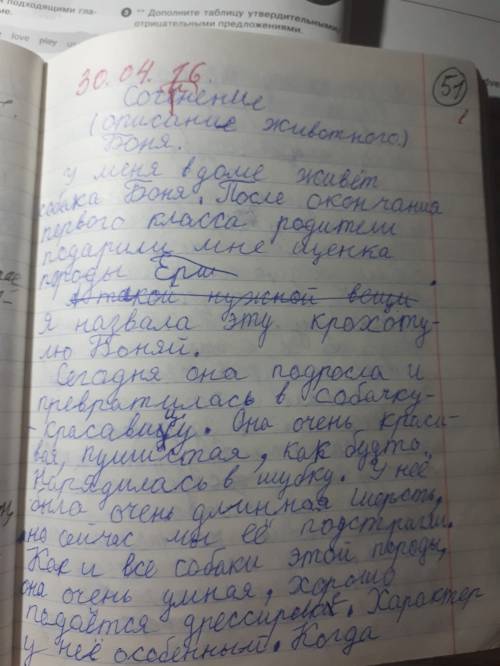 5 ** Дополните таблицу утвердительными,
отрицательными предложениями.
love play
30.04.16.
51
Сочинение
(описание животного)
Боня.
У меня в доме живёт
собака Боня. После окончания
первого класса родители
подарили мне щенка
породы Ерш
О такой нужной вещи
Я назвала эту крохоту-
лю Боняй.
Сегодня она подросла и
превратилась в собачку-
-красавицу. Она очень краси-
вая, пушистая, как будто
нарядилась в шубку. У неё
была очень длинная шерсть,
но сейчас мы её подстригли.
Как и все собаки этой породы,
она очень умная, хорошо
подаётся дрессировке. Характер
у неё особенный. Когда